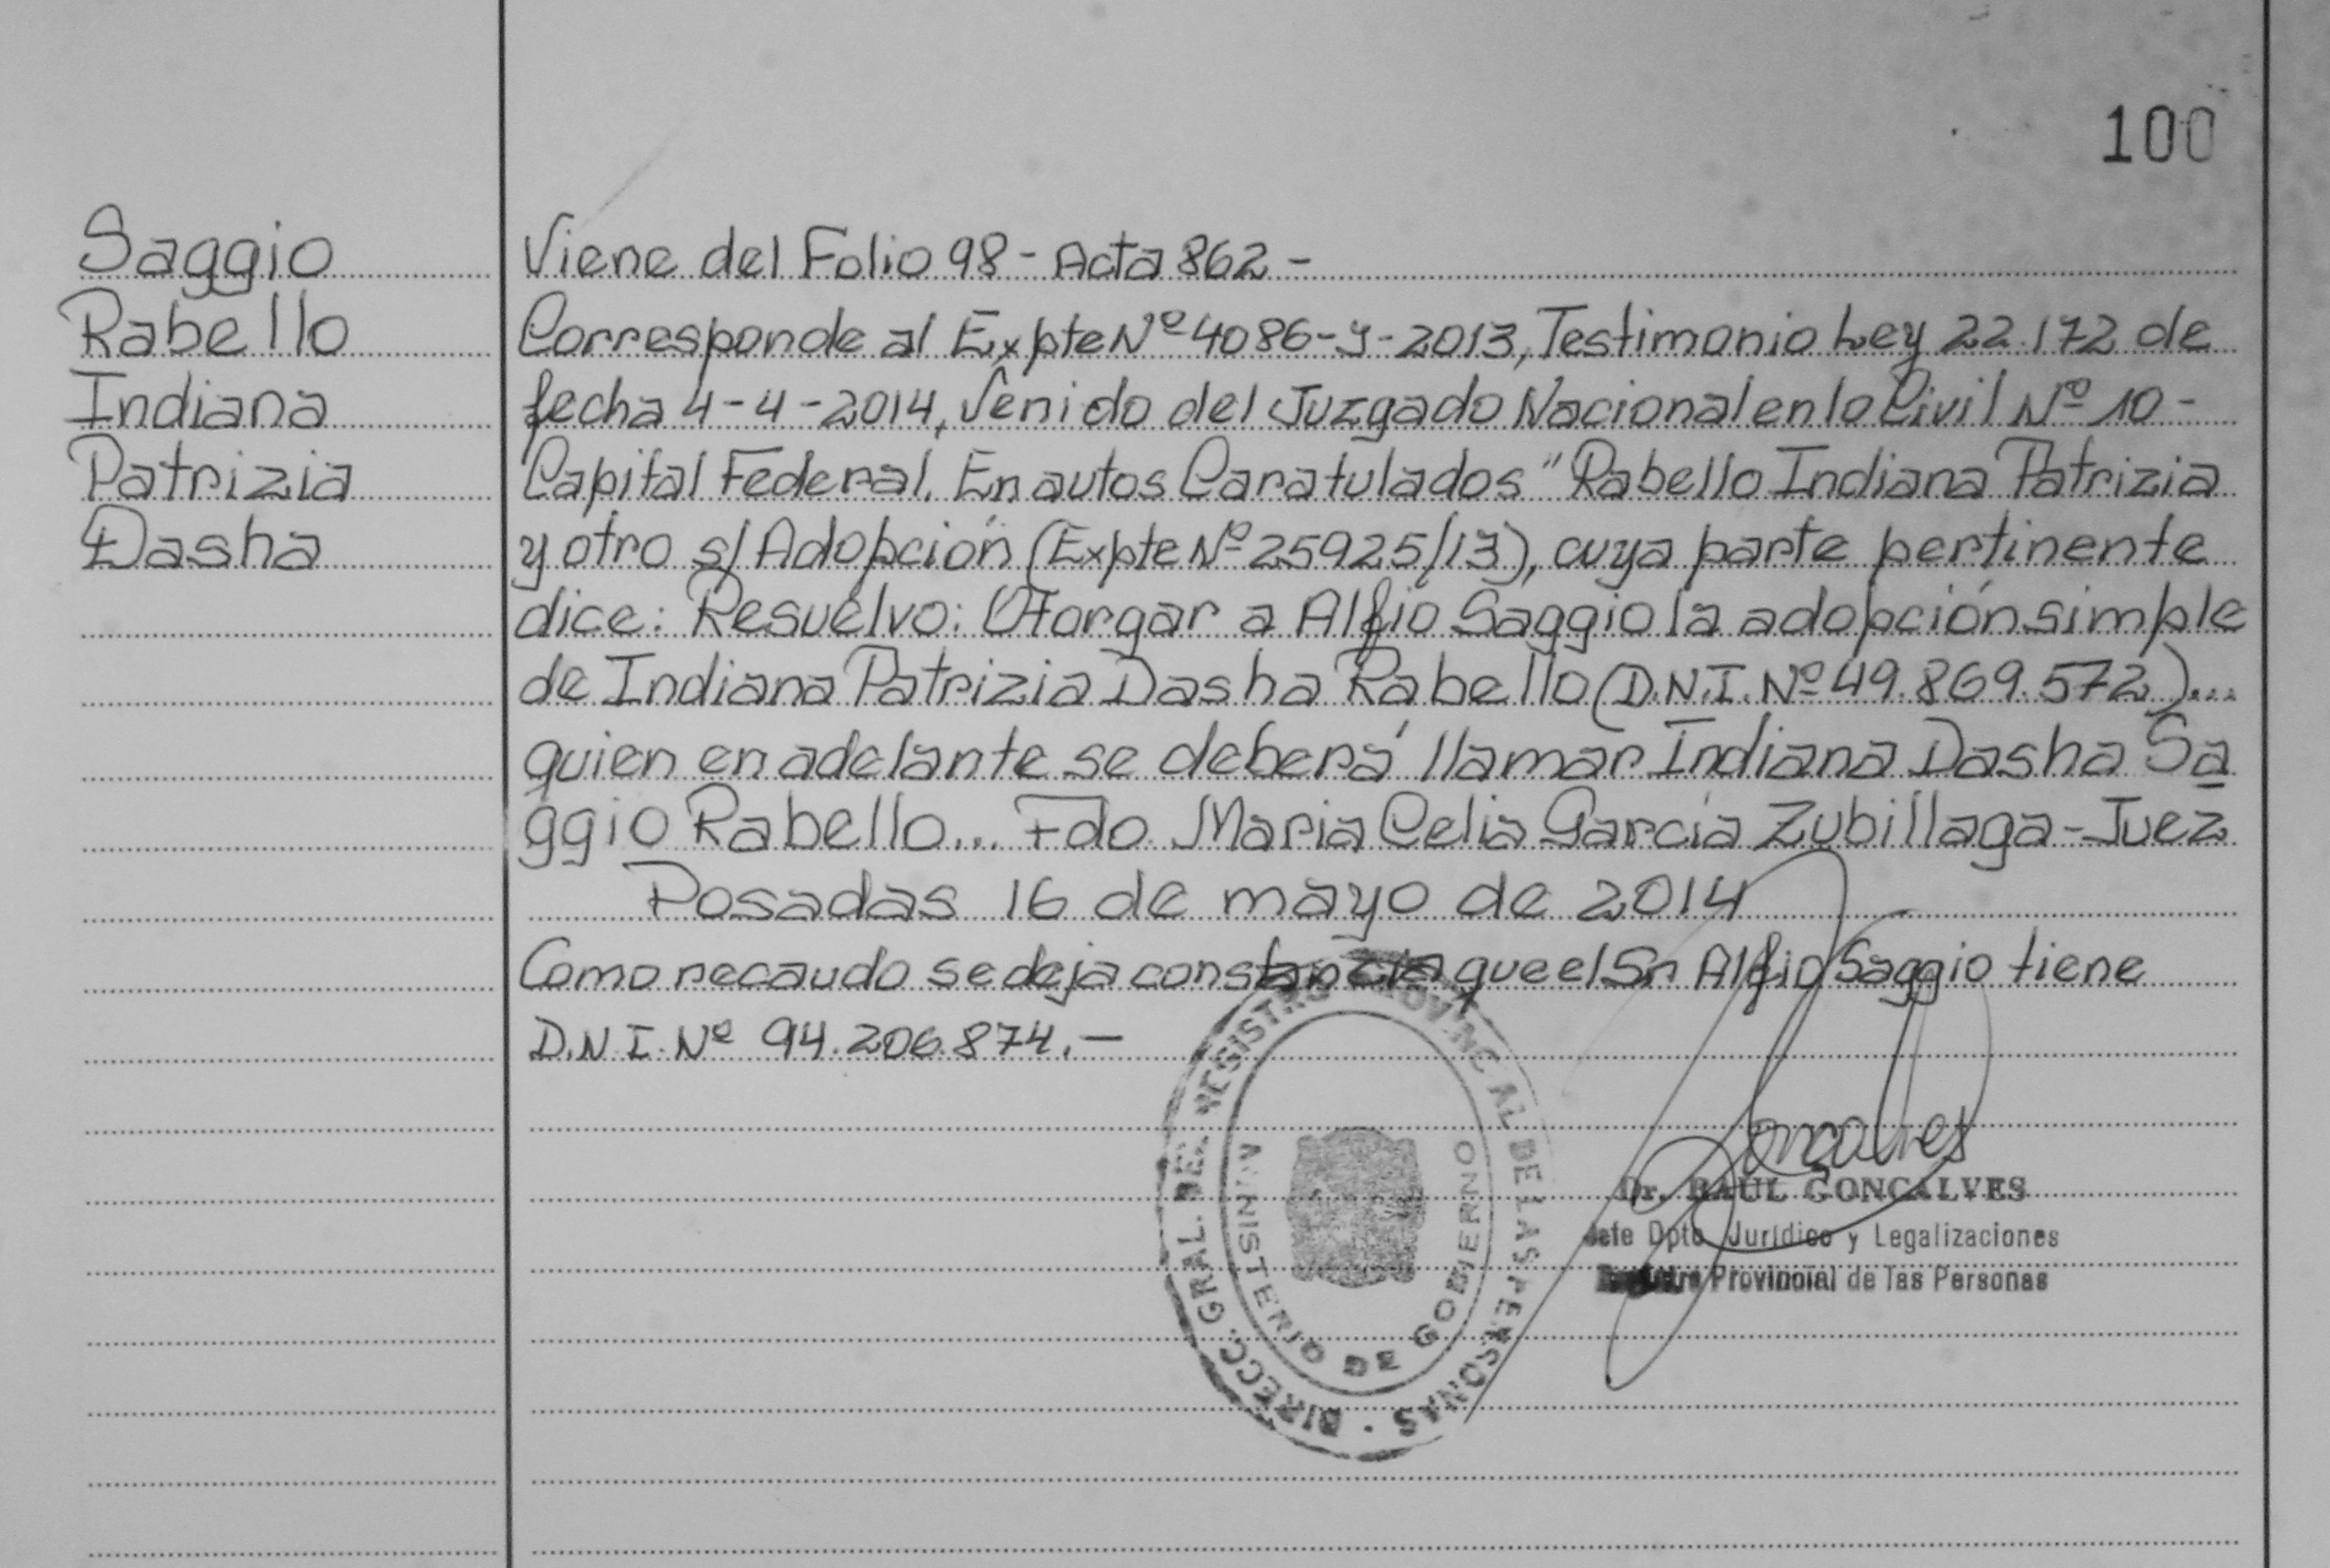 100
Saggio
Rabello
Indiana
Patrizia
Dasha
Viene del Folio 98 - Acta 862 -
Corresponde al Expte Nº 4086-y-2013, Testimonio Ley 22.172 de
fecha 4-4-2014, Venido del Juzgado Nacional en lo Civil Nº 10 -
Capital Federal. En autos Caratulados "Rabello Indiana Patrizia
y otro s/ Adopción (Expte Nº 25925/13), cuya parte pertinente
dice: Resuelvo: Otorgar a Alfio Saggio la adopción simple
de Indiana Patrizia Dasha Rabello (D.N.I. Nº 49.869.572)...
quien en adelante se deberá llamar Indiana Dasha Sa
ggio Rabello... Fdo. Maria Celia García Zubillaga - Juez
Posadas 16 de mayo de 2014
Como recaudo se deja constancia que el Sr Alfio Saggio tiene
D.N.I. Nº 94.206.874.-
DIRECC. GRAL. DEL REGISTRO PROVINCIAL DE LAS PERSONAS
MINISTERIO DE GOBIERNO
Goncalves
Dr. RAUL GONCALVES
Jefe Dpto Jurídico y Legalizaciones
Registro Provincial de las Personas